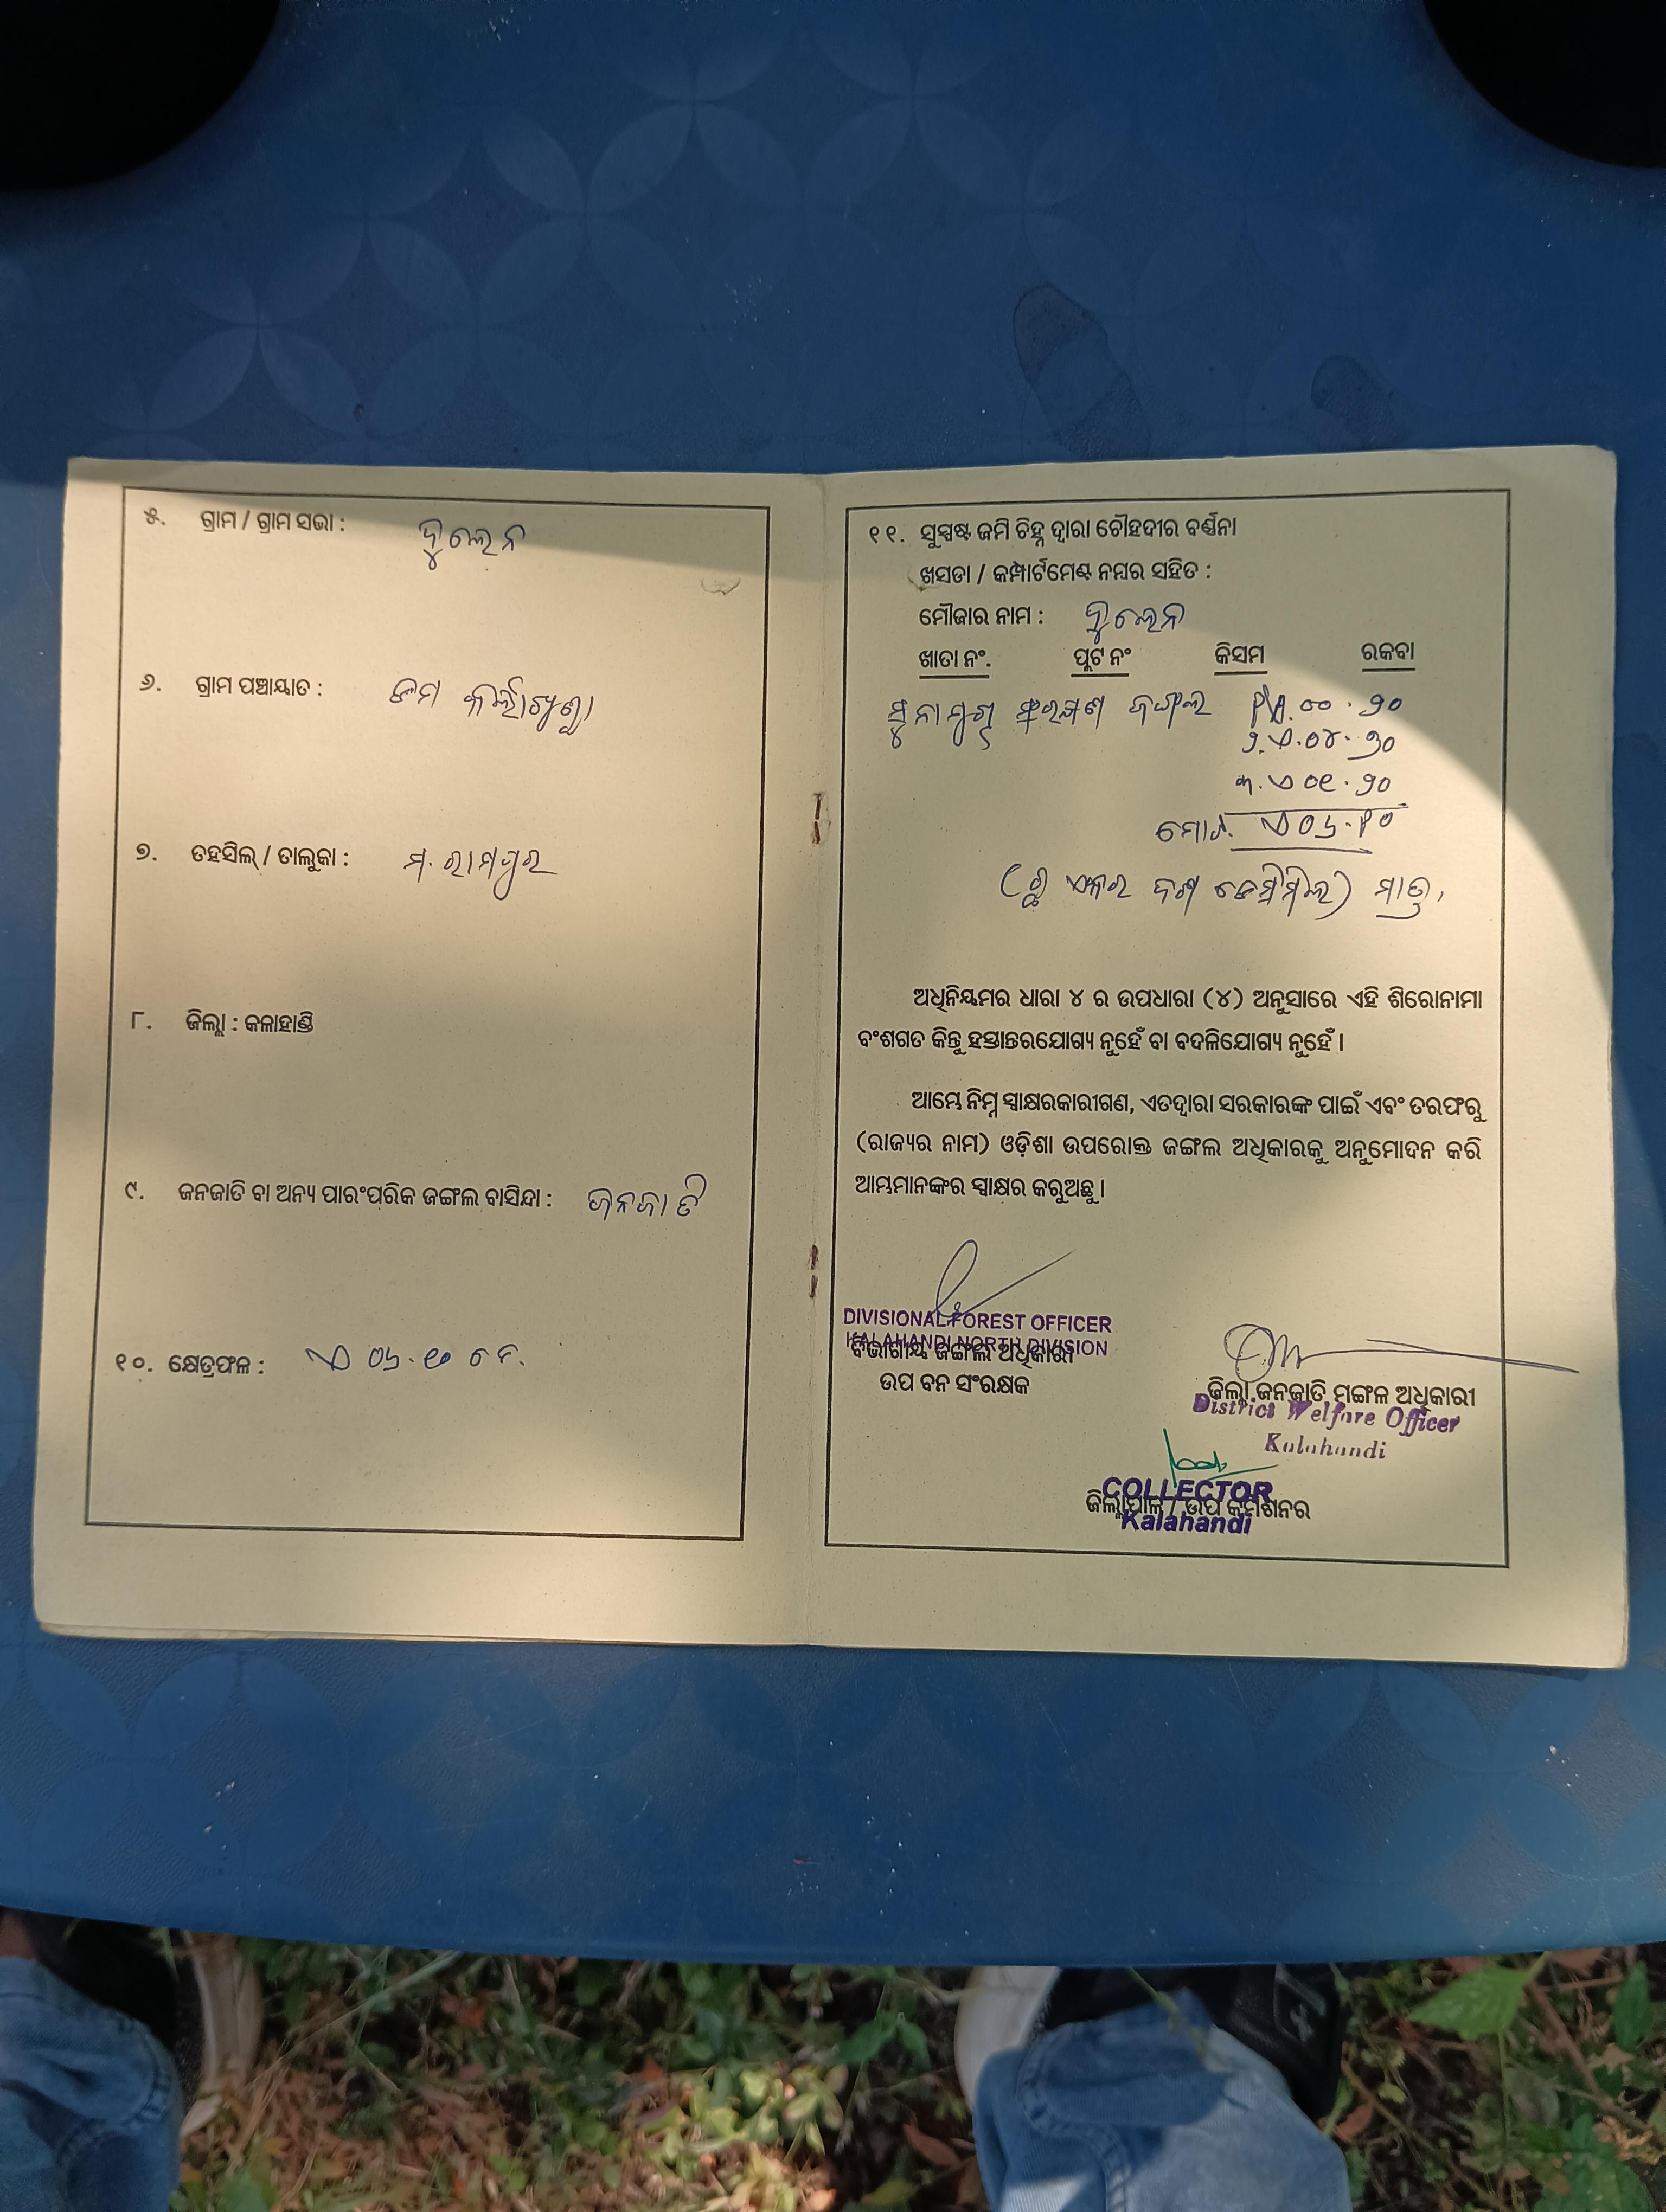 ୫. ଗ୍ରାମ / ଗ୍ରାମ ସଭା : ଦୁଲେନ
୬. ଗ୍ରାମ ପଞ୍ଚାୟାତ : ଡମ କର୍ଲାଖୁଣ୍ଟା
୭. ତହସିଲ୍ / ତାଲୁକା : ମ. ରାମପୁର
୮. ଜିଲ୍ଲା : କଳାହାଣ୍ଡି
୯. ଜନଜାତି ବା ଅନ୍ୟ ପାରଂପରିକ ଜଙ୍ଗଲ ବାସିନ୍ଦା : ଜନଜାତି
୧୦. କ୍ଷେତ୍ରଫଳ : ଏ ୦୬.୧୦ ଡି.
୧୧. ସୁସ୍ପଷ୍ଟ ଜମି ଚିହ୍ନ ଦ୍ଵାରା ଚୌହଦୀର ବର୍ଣ୍ଣନା
ଖସଡା / କମ୍ପାର୍ଟମେଣ୍ଟ ନମ୍ବର ସହିତ :
ମୌଜାର ନାମ : ଦୁଲେନ
ଖାତା ନଂ. ପ୍ଲଟ ନଂ କିସମ ରକବା
ସଂରକ୍ଷଣ ଜଙ୍ଗଲ
୨.ଏ.୦୪.୨୦
୩.ଏ ୦୧.୨୦
ମୋଟ. ଏ ୦୬.୧୦
(ଛଅ ଏକର ଦଶ ଡେସିମିଲ) ମାତ୍ର,
ଅଧିନିୟମର ଧାରା ୪ ର ଉପଧାରା (୪) ଅନୁସାରେ ଏହି ଶିରୋନାମା
ବଂଶଗତ କିନ୍ତୁ ହସ୍ତାନ୍ତରଯୋଗ୍ୟ ନୁହେଁ ବା ବଦଳିଯୋଗ୍ୟ ନୁହେଁ ।
ଆମ୍ଭେ ନିମ୍ନ ସ୍ୱାକ୍ଷରକାରୀଗଣ, ଏତଦ୍ୱାରା ସରକାରଙ୍କ ପାଇଁ ଏବଂ ତରଫରୁ
(ରାଜ୍ୟର ନାମ) ଓଡ଼ିଶା ଉପରୋକ୍ତ ଜଙ୍ଗଲ ଅଧିକାରକୁ ଅନୁମୋଦନ କରି
ଆମ୍ଭମାନଙ୍କର ସ୍ୱାକ୍ଷର କରୁଅଛୁ ।
DIVISIONAL FOREST OFFICER
KALAHANDI NORTH DIVISION
ବିଭାଗୀୟ ଜଙ୍ଗଲ ଅଧିକାରୀ
ଉପ ବନ ସଂରକ୍ଷକ
ଜିଲ୍ଲା ଜନଜାତି ମଙ୍ଗଳ ଅଧିକାରୀ
District Welfare Officer
Kalahandi
COLLECTOR
ଜିଲ୍ଲାପାଳ / ଉପ କମିଶନର
Kalahandi